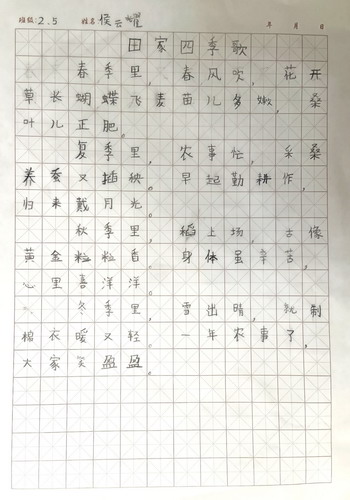 班级:2.5 姓名 侯云耀 年 月 日
田家四季歌
春季里,春风吹,花开
草长蝴蝶飞麦苗儿多嫩,桑
叶儿正肥。
夏季里,农事忙,采桑
养蚕又插秧。早起勤耕作,
归来戴月光。
秋季里,稻上场,古像
黄金粒粒香。身体虽辛苦,
心里喜洋洋。
冬季里,雪出晴,就制
棉衣暖又轻。一年农事了,
大家笑盈盈。